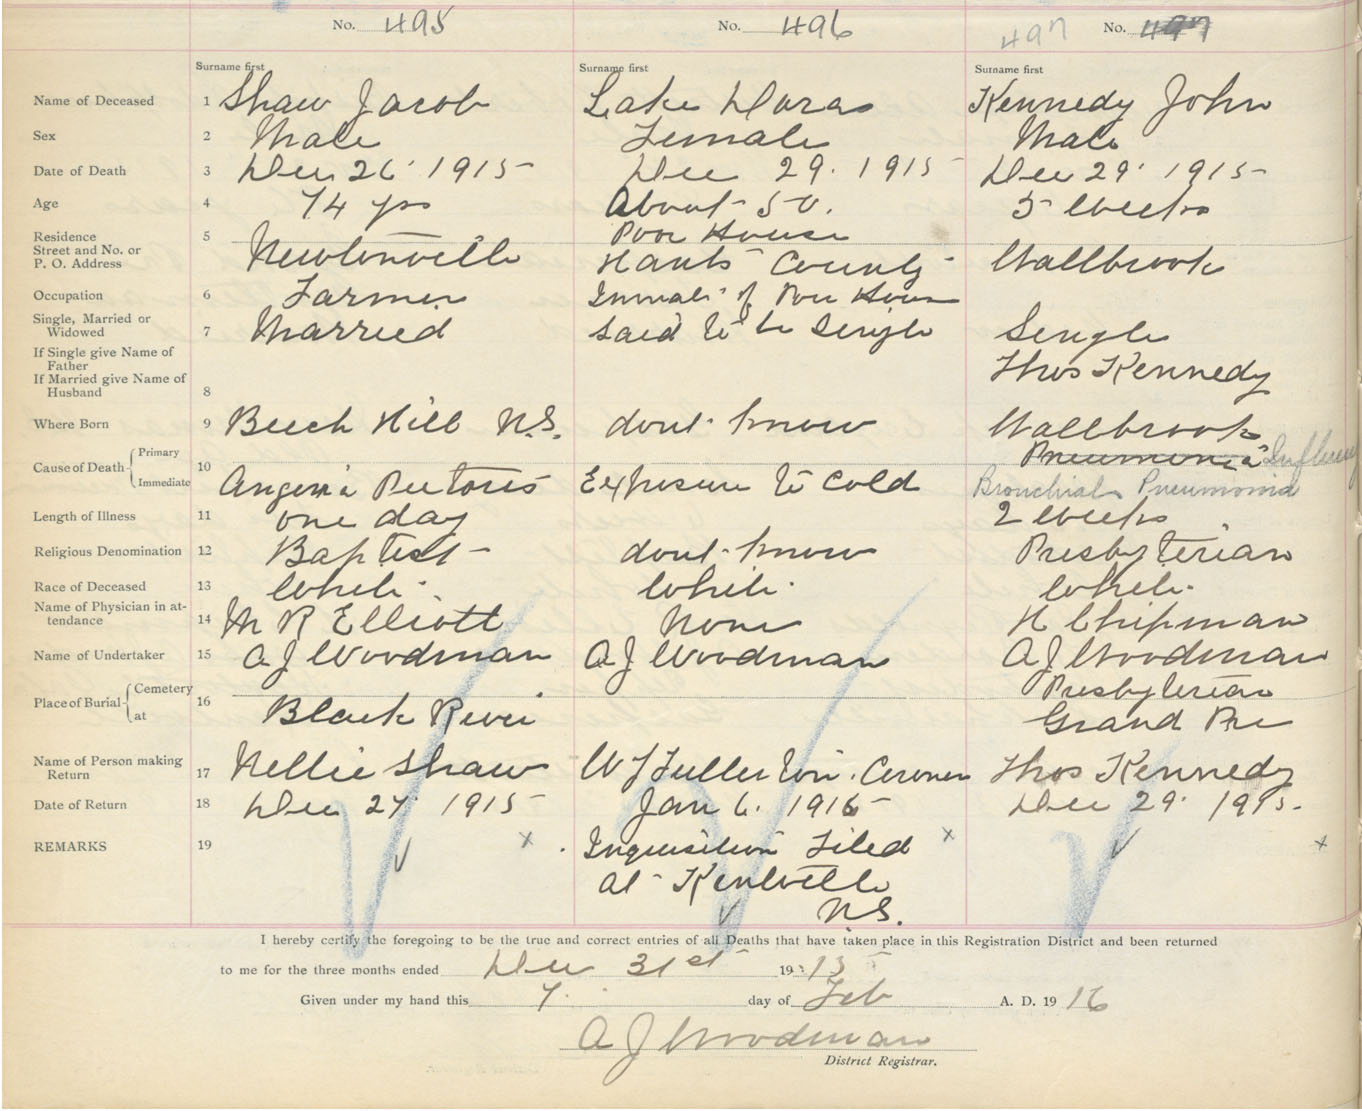 No. 495 No. 496 497 No. 497
Surname first Surname first Surname first
Name of Deceased 1 Shaw Jacob Lake Doras Kennedy John
Sex 2 Male Female Male
Date of Death 3 Dec 26 1915 Dec 29. 1915 Dec 29 1915
Age 4 74 yrs About 50. 5 weeks
Residence 5 Poor House
Street and No. or
P. O. Address Newtonville Hants County Wallbrook
Occupation 6 Farmer Inmate of Poor House
Single, Married or
Widowed 7 Married Said to be Single Single
If Single give Name of
Father Thos Kennedy
If Married give Name of
Husband 8
Where Born 9 Beech Hill N.S. dont know Wallbrook
Cause of Death Primary 10 Pneumonia Influenza
Immediate Angina Pectoris Exposure to Cold Bronchial Pneumonia
Length of Illness 11 one day 2 weeks
Religious Denomination 12 Baptist dont know Presbyterian
Race of Deceased 13 White White White
Name of Physician in at-
tendance 14 M R Elliott None H Chipman
Name of Undertaker 15 A J Woodman A J Woodman A J Woodman
Place of Burial Cemetery 16 Presbyterian
at Black River Grand Pre
Name of Person making
Return 17 Nellie Shaw W J Fullerton Coroner Thos Kennedy
Date of Return 18 Dec 27 1915 Jan 6. 1916 Dec 29 1915.
REMARKS 19 x Inquisition Filed x x
at Kentville
N.S.
I hereby certify the foregoing to be the true and correct entries of all Deaths that have taken place in this Registration District and been returned
to me for the three months ended Dec 31st 1915
Given under my hand this 7. day of Feb A. D. 1916
A J Woodman
District Registrar.